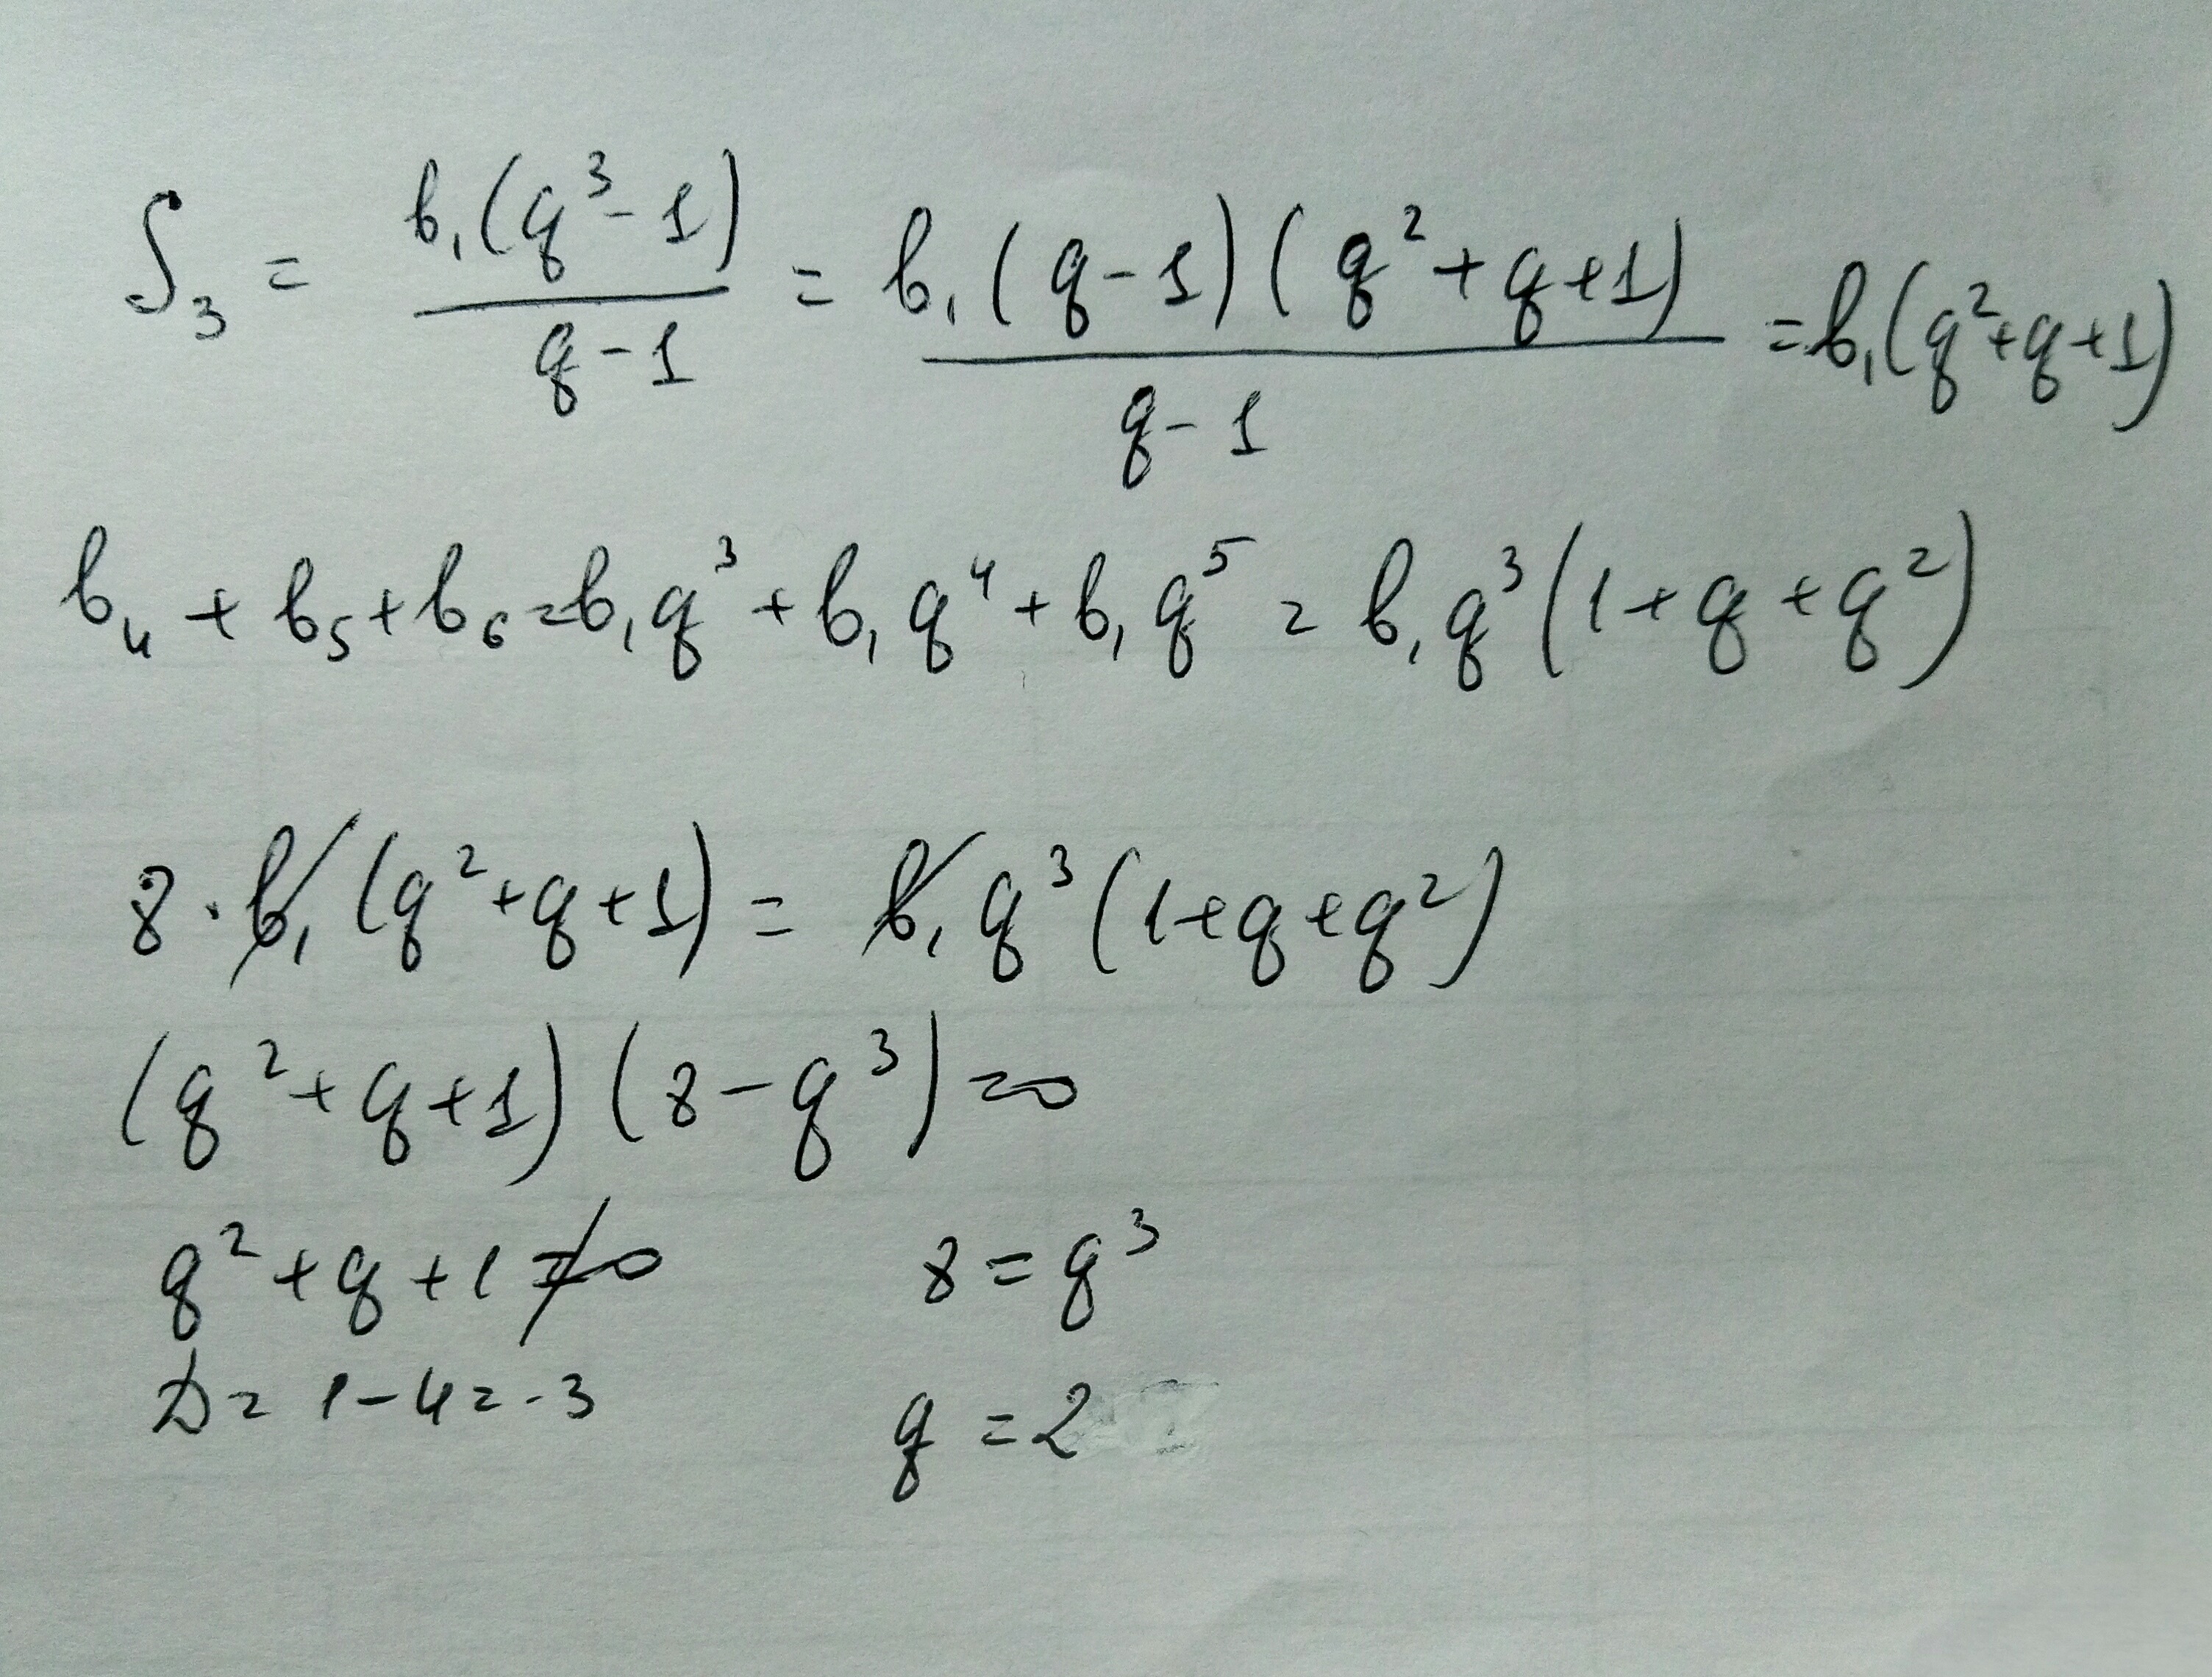 S₃ = b₁(q³-1)/(q-1) = b₁(q-1)(q²+q+1)/(q-1) = b₁(q²+q+1)
b₄ + b₅ + b₆ = b₁q³ + b₁q⁴ + b₁q⁵ = b₁q³(1+q+q²)
8·b₁(q²+q+1) = b₁q³(1+q+q²)
(q²+q+1)(8-q³)=0
q²+q+1≠0 8=q³
D=1-4=-3 q=2